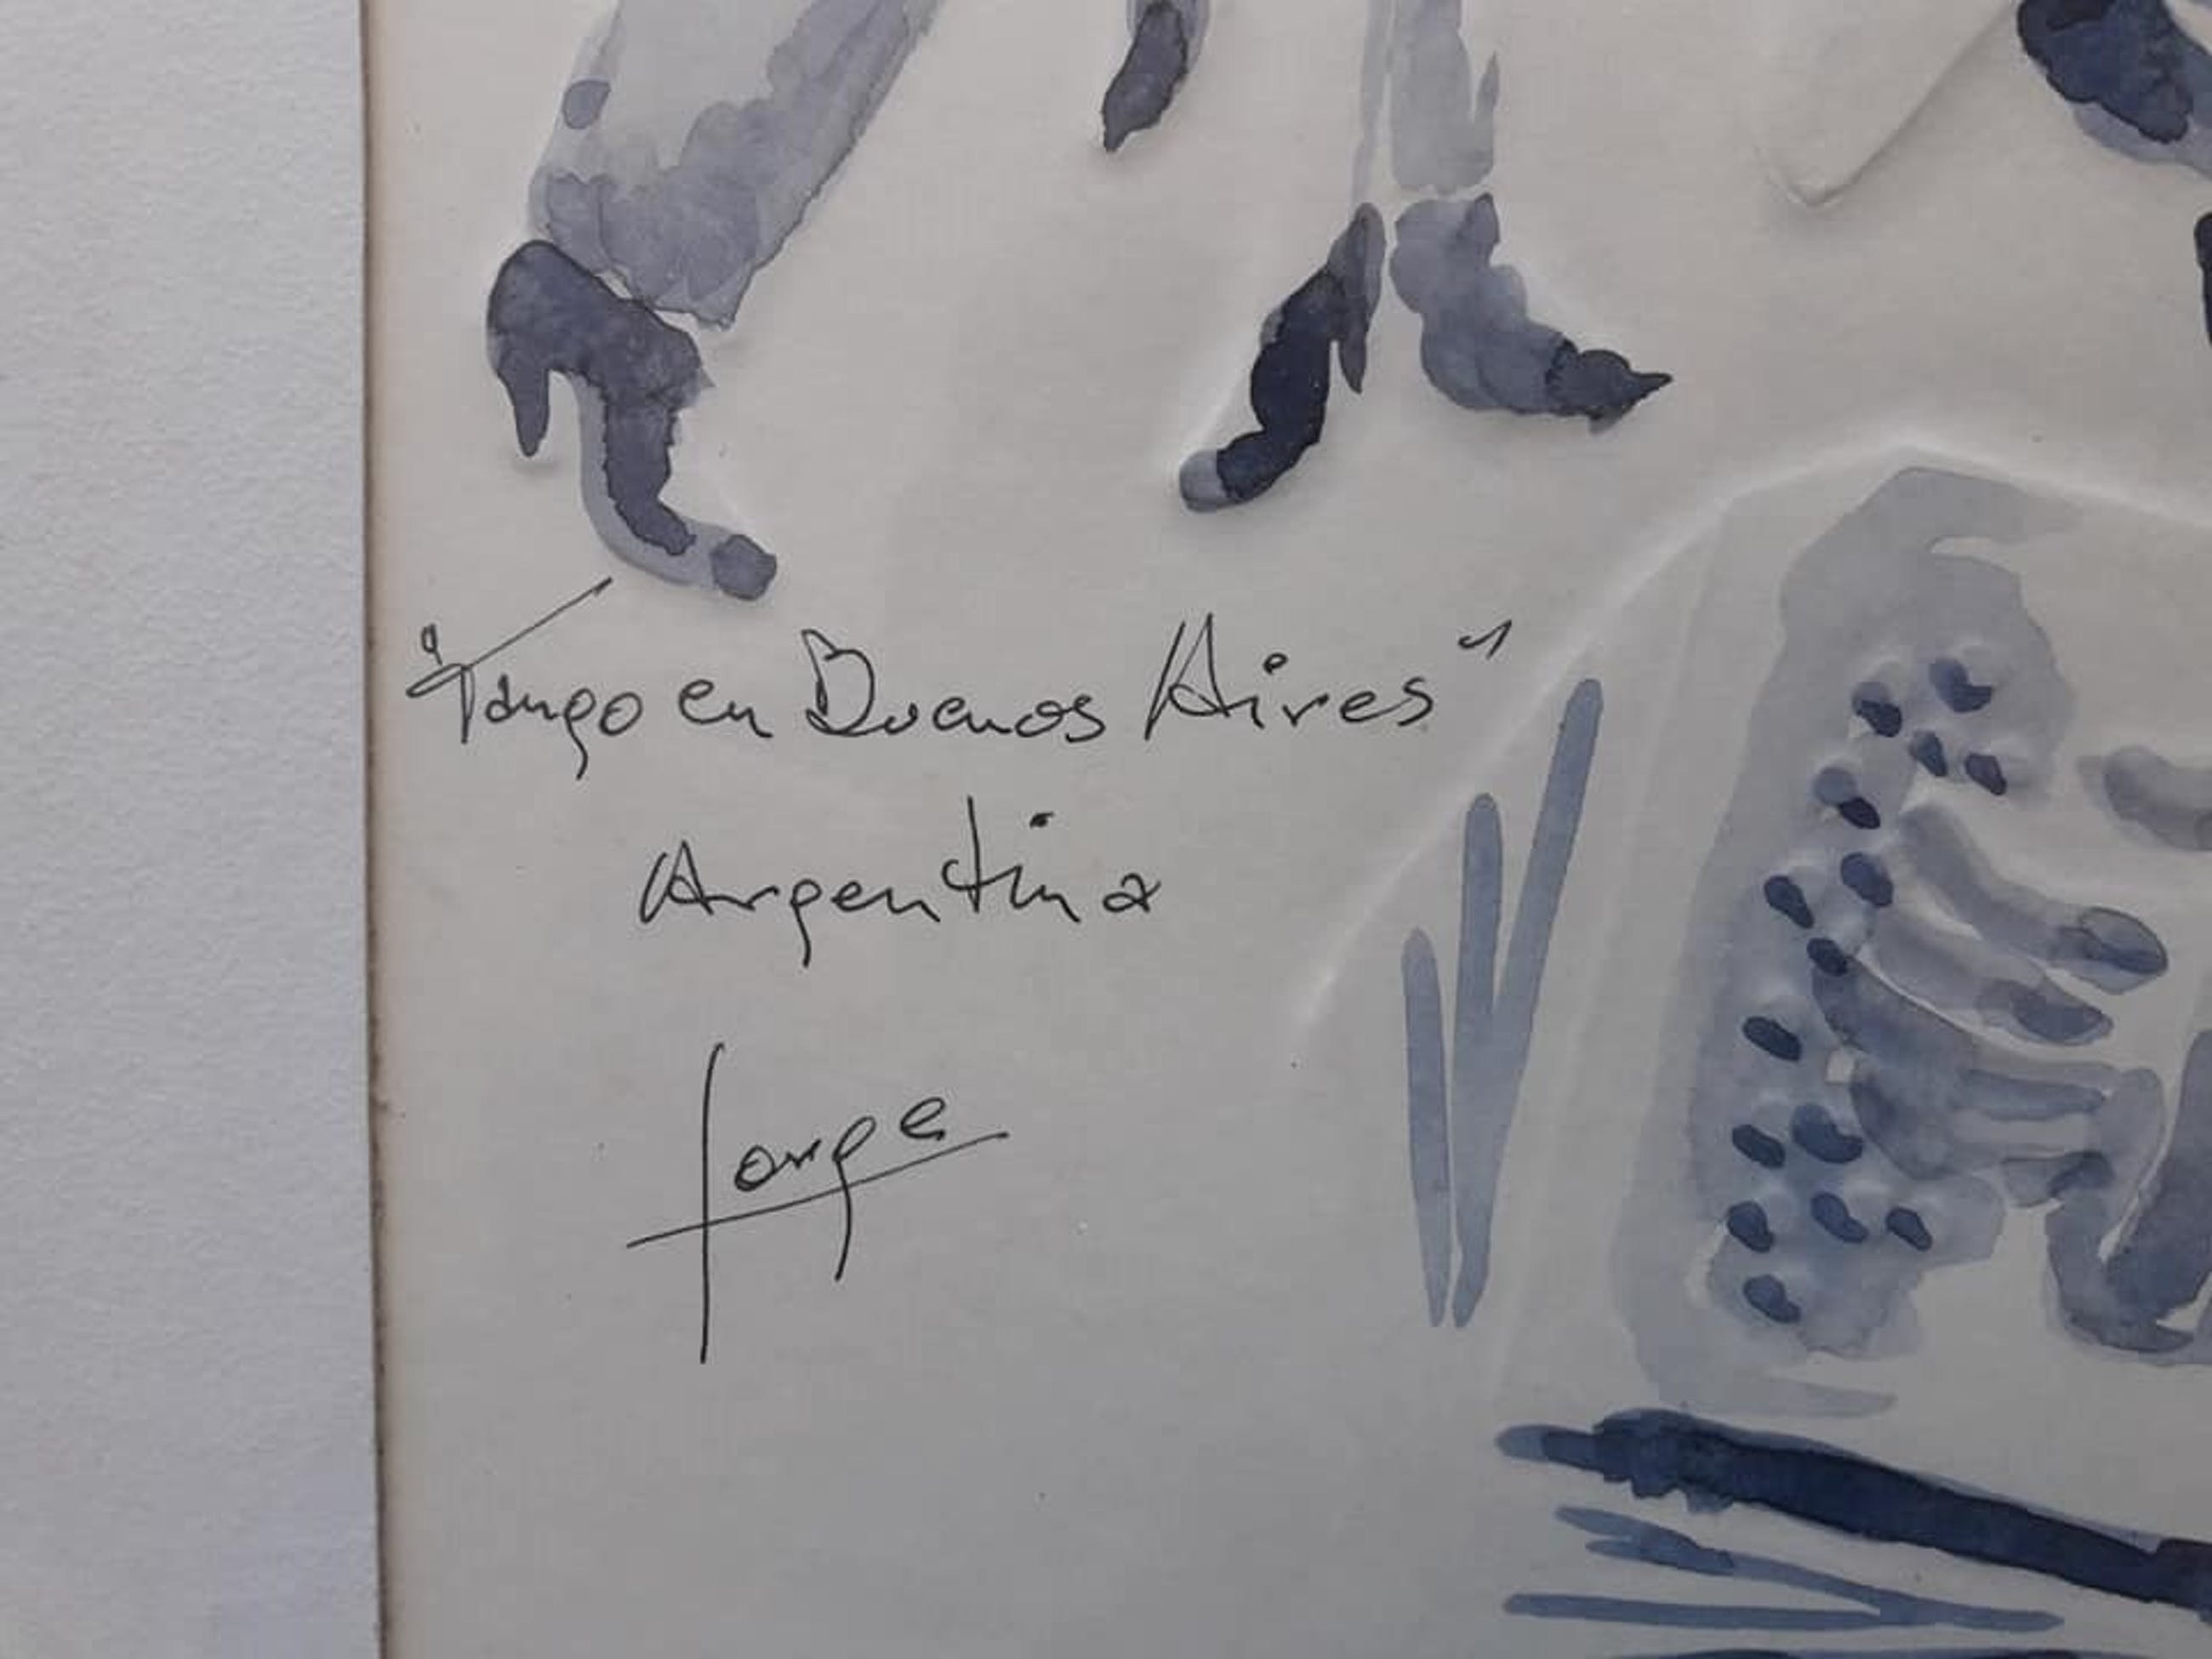 "Tango en Buenos Aires"
Argentina
Jorge